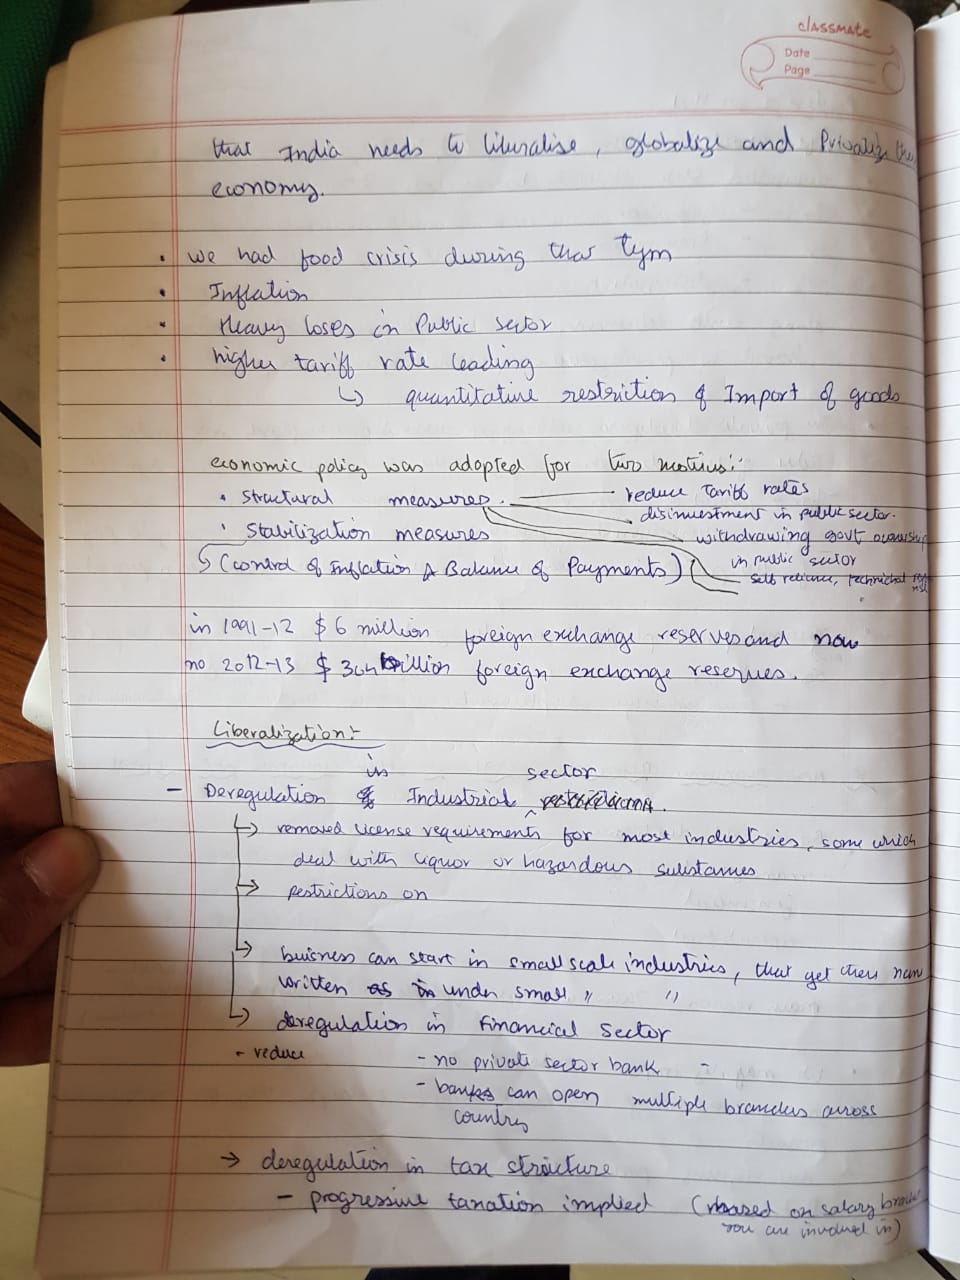 classmate
Date
Page
that India needs to liberalise, globalize and Privatize the
economy.
• we had food crisis during that tym
• Inflation
• Heavy loses in Public sector
• higher tariff rate leading
↳ quantitative restriction of Import of goods
economic policy was adopted for two motives:-
• Structural measures. reduce Tariff rates
disinvestment in public sector.
• Stabilization measures withdrawing govt ownership
↳ (control of Inflation & Balance of Payments) in public sector
self reliance, technical
in 1991-12 $ 6 million foreign exchange reserves and now
no 2012-13 $ 364 billion foreign exchange reserves.
Liberalization:-
in sector
- Deregulation Industrial
↳ removed license requirements for most industries, some which
deal with liquor or hazardous substances
↳ restrictions on
↳ buisness can start in small scale industries, that get there name
written as in under small " "
↳ deregulation in Financial Sector
- reduce - no private sector bank -
- banks can open multiple branches across
country
→ deregulation in tax structure
- progressive taxation implied (based on salary
you are involved in)